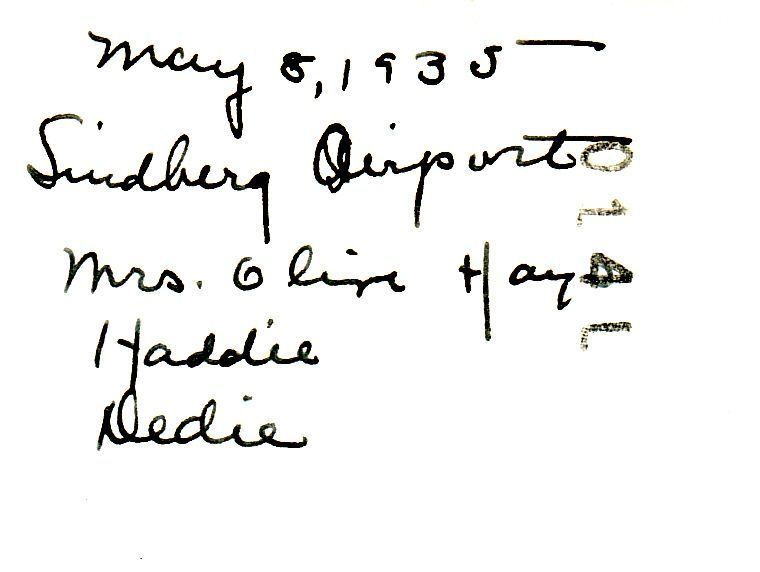 May 8, 1935
Lindberg Airport
Mrs. Olive Hay
Haddie
Dedie